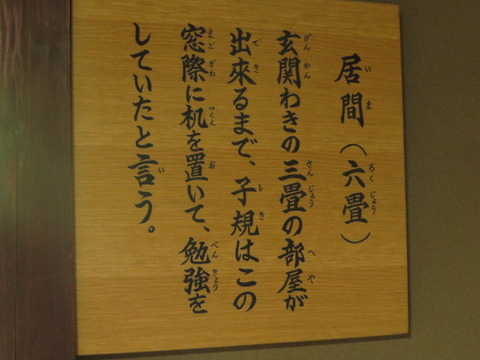 居間（六畳）
玄関わきの三畳の部屋が
出來るまで、子規はこの
窓際に机を置いて、勉強を
していたと言う。